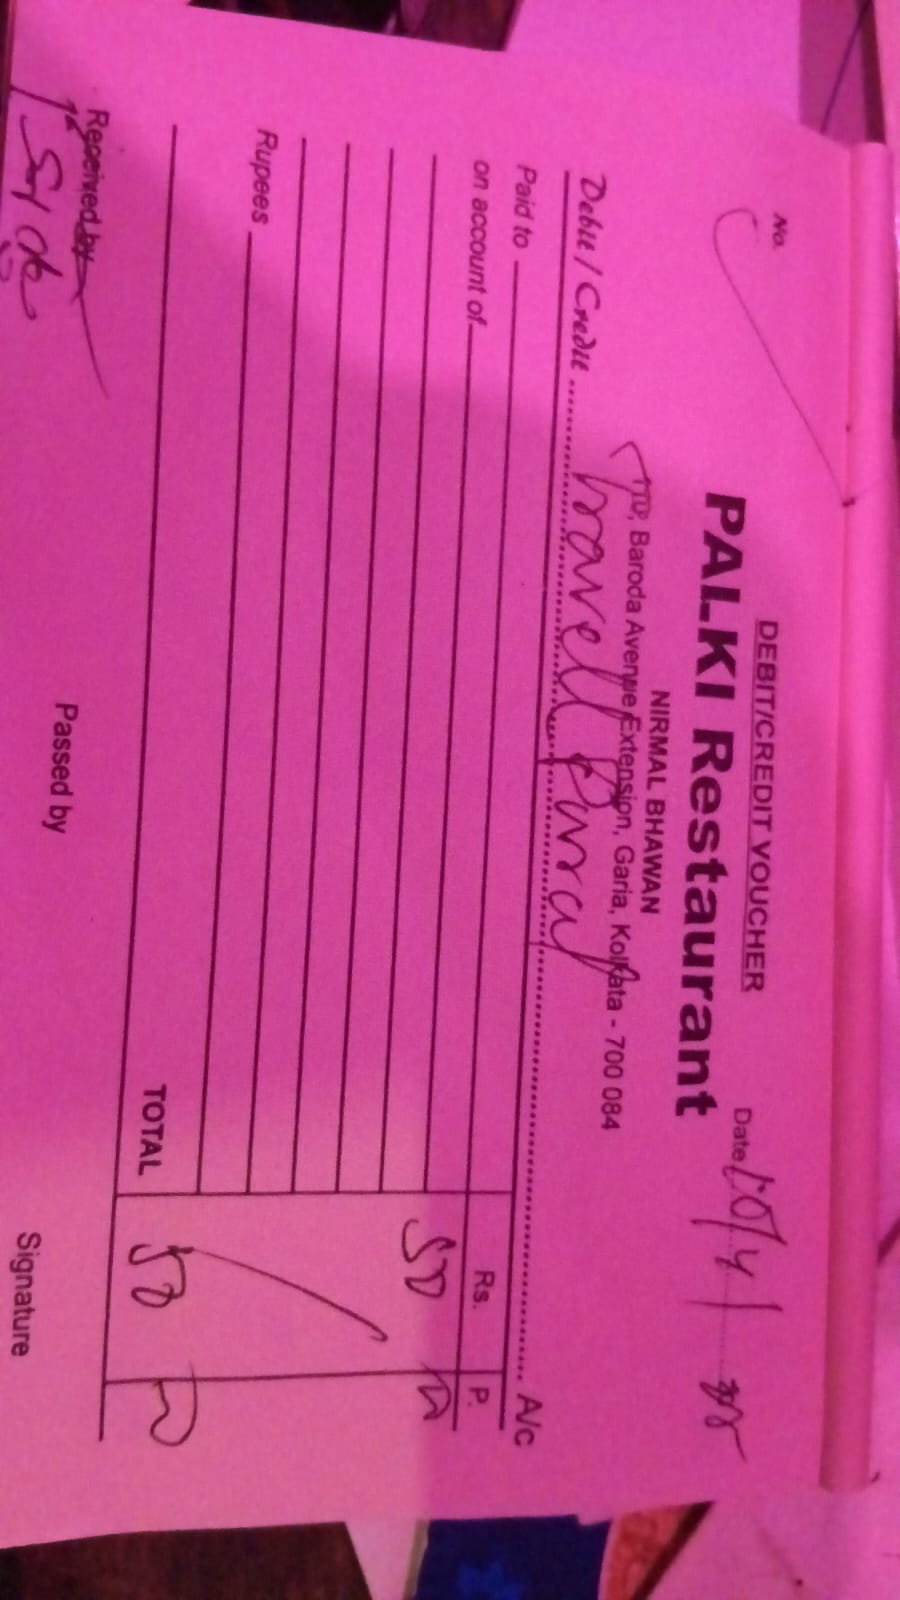 DEBIT/CREDIT VOUCHER
No.
PALKI Restaurant
Date
NIRMAL BHAWAN
Baroda Avenue Extension, Garia, Kolkata - 700 084
Debit / Credit travell A/c
Paid to
on account of Rs. P.
50
Rupees
TOTAL 50
Received by Passed by Signature